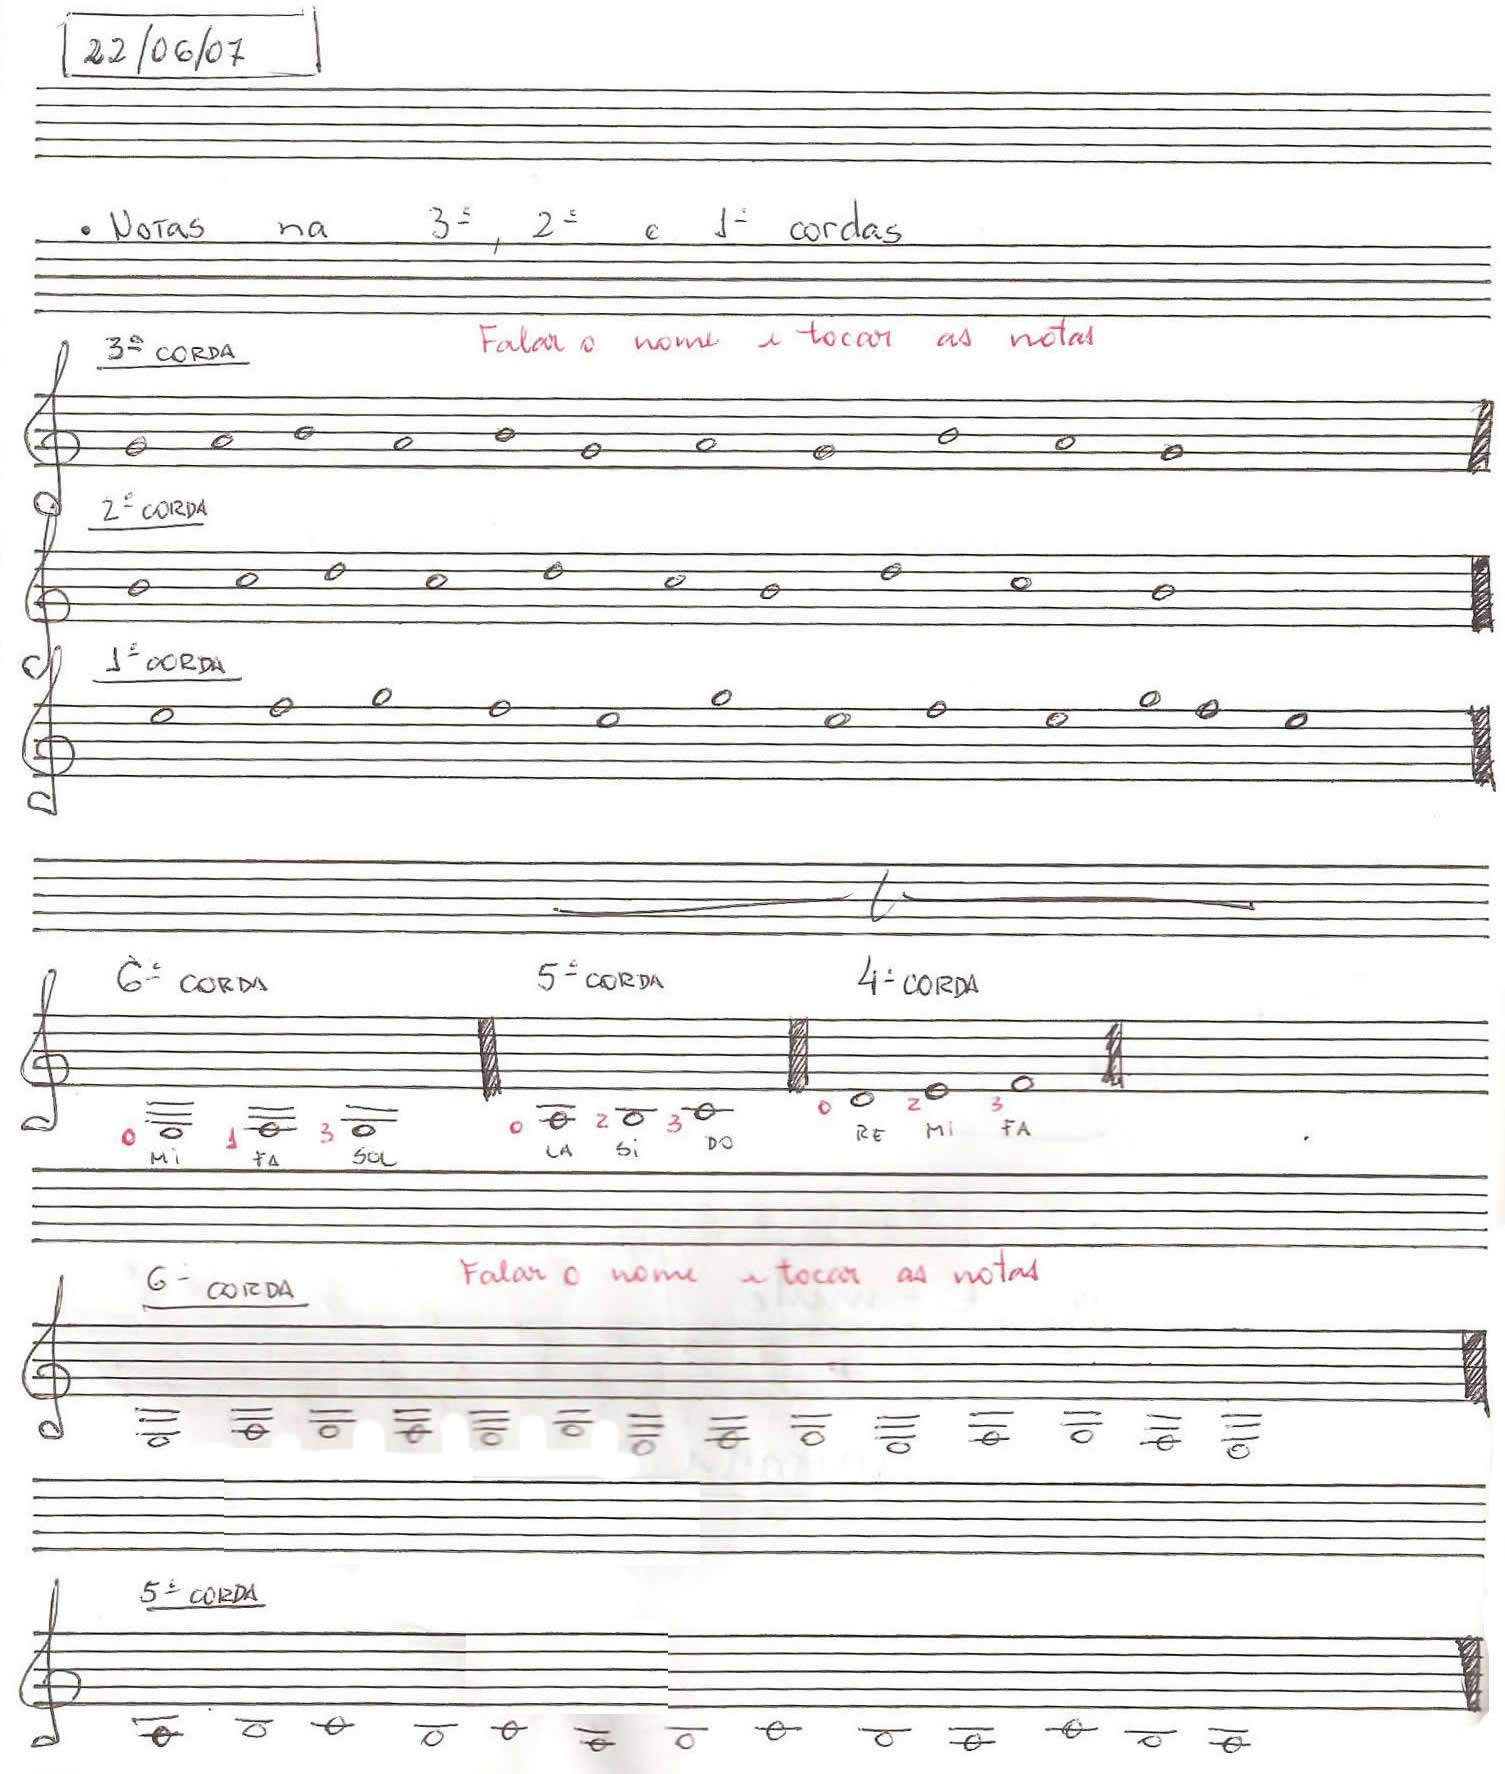 22/06/07
• Notas na 3ª, 2ª e 1ª cordas
Falar o nome e tocar as notas
3ª CORDA
2ª CORDA
1ª CORDA
6ª CORDA 5ª CORDA 4ª CORDA
0 1 3 0 2 3 0 2 3
Mi FA SOL LA Si DO RE Mi FA
Falar o nome e tocar as notas
6ª CORDA
5ª CORDA